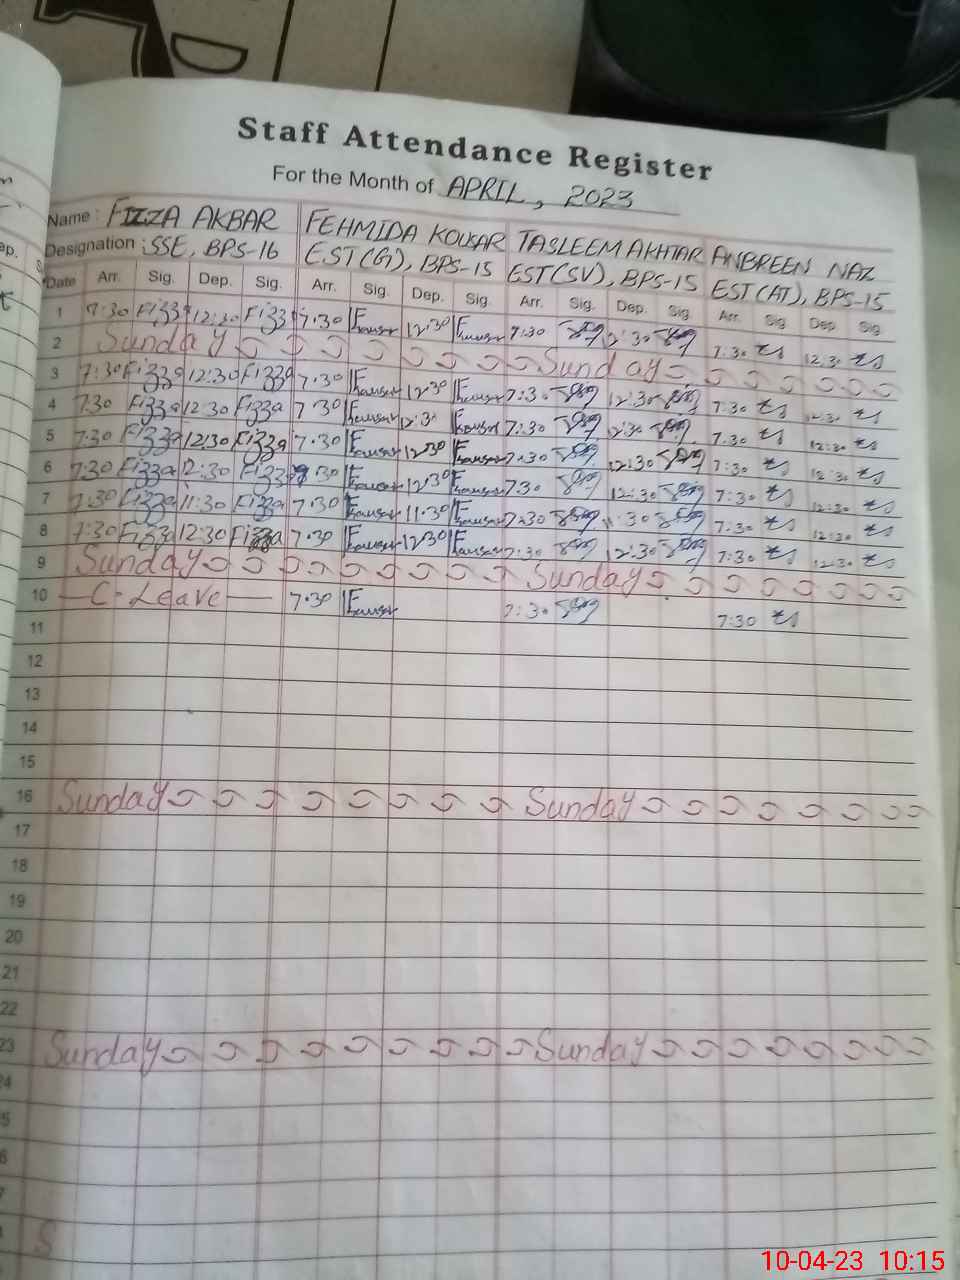 Staff Attendance Register
For the Month of APRIL, 2023
Name: FIZZA AKBAR FEHMIDA KOUSAR TASLEEM AKHTAR ANBREEN NAZ
Designation: SSE, BPS-16 EST(G), BPS-15 EST(SV), BPS-15 EST(AT), BPS-15
Date Arr. Sig. Dep. Sig. Arr. Sig. Dep. Sig. Arr. Sig. Dep. Sig. Arr. Sig. Dep. Sig.
1 7:30 Fizza 12:30 Fizza 7.30 Fkausar 12:30 Fkausar 7:30 12:30 7:30 12:30
2 Sunday Sunday
3 7:30 Fizza 12:30 Fizza 7.30 Fkausar 12:30 Fkausar 7:30 12:30 7:30 12:30
4 7:30 Fizza 12:30 Fizza 7.30 Fkausar 12:30 Fkausar 7:30 12:30 7:30 12:30
5 7:30 Fizza 12:30 Fizza 7.30 Fkausar 12:30 Fkausar 7:30 12:30 7:30 12:30
6 7:30 Fizza 12:30 Fizza 7.30 Fkausar 12:30 Fkausar 7:30 12:30 7:30 12:30
7 7:30 Fizza 11:30 Fizza 7.30 Fkausar 11:30 Fkausar 7:30 11:30 7:30
8 7:30 Fizza 12:30 Fizza 7.30 Fkausar 12:30 Fkausar 7:30 12:30 7:30 12:30
9 Sunday Sunday
10 C-Leave 7.30 Fkausar 7:30 7:30
11
12
13
14
15
16 Sunday Sunday
17
18
19
20
21
22
23 Sunday Sunday
10-04-23 10:15